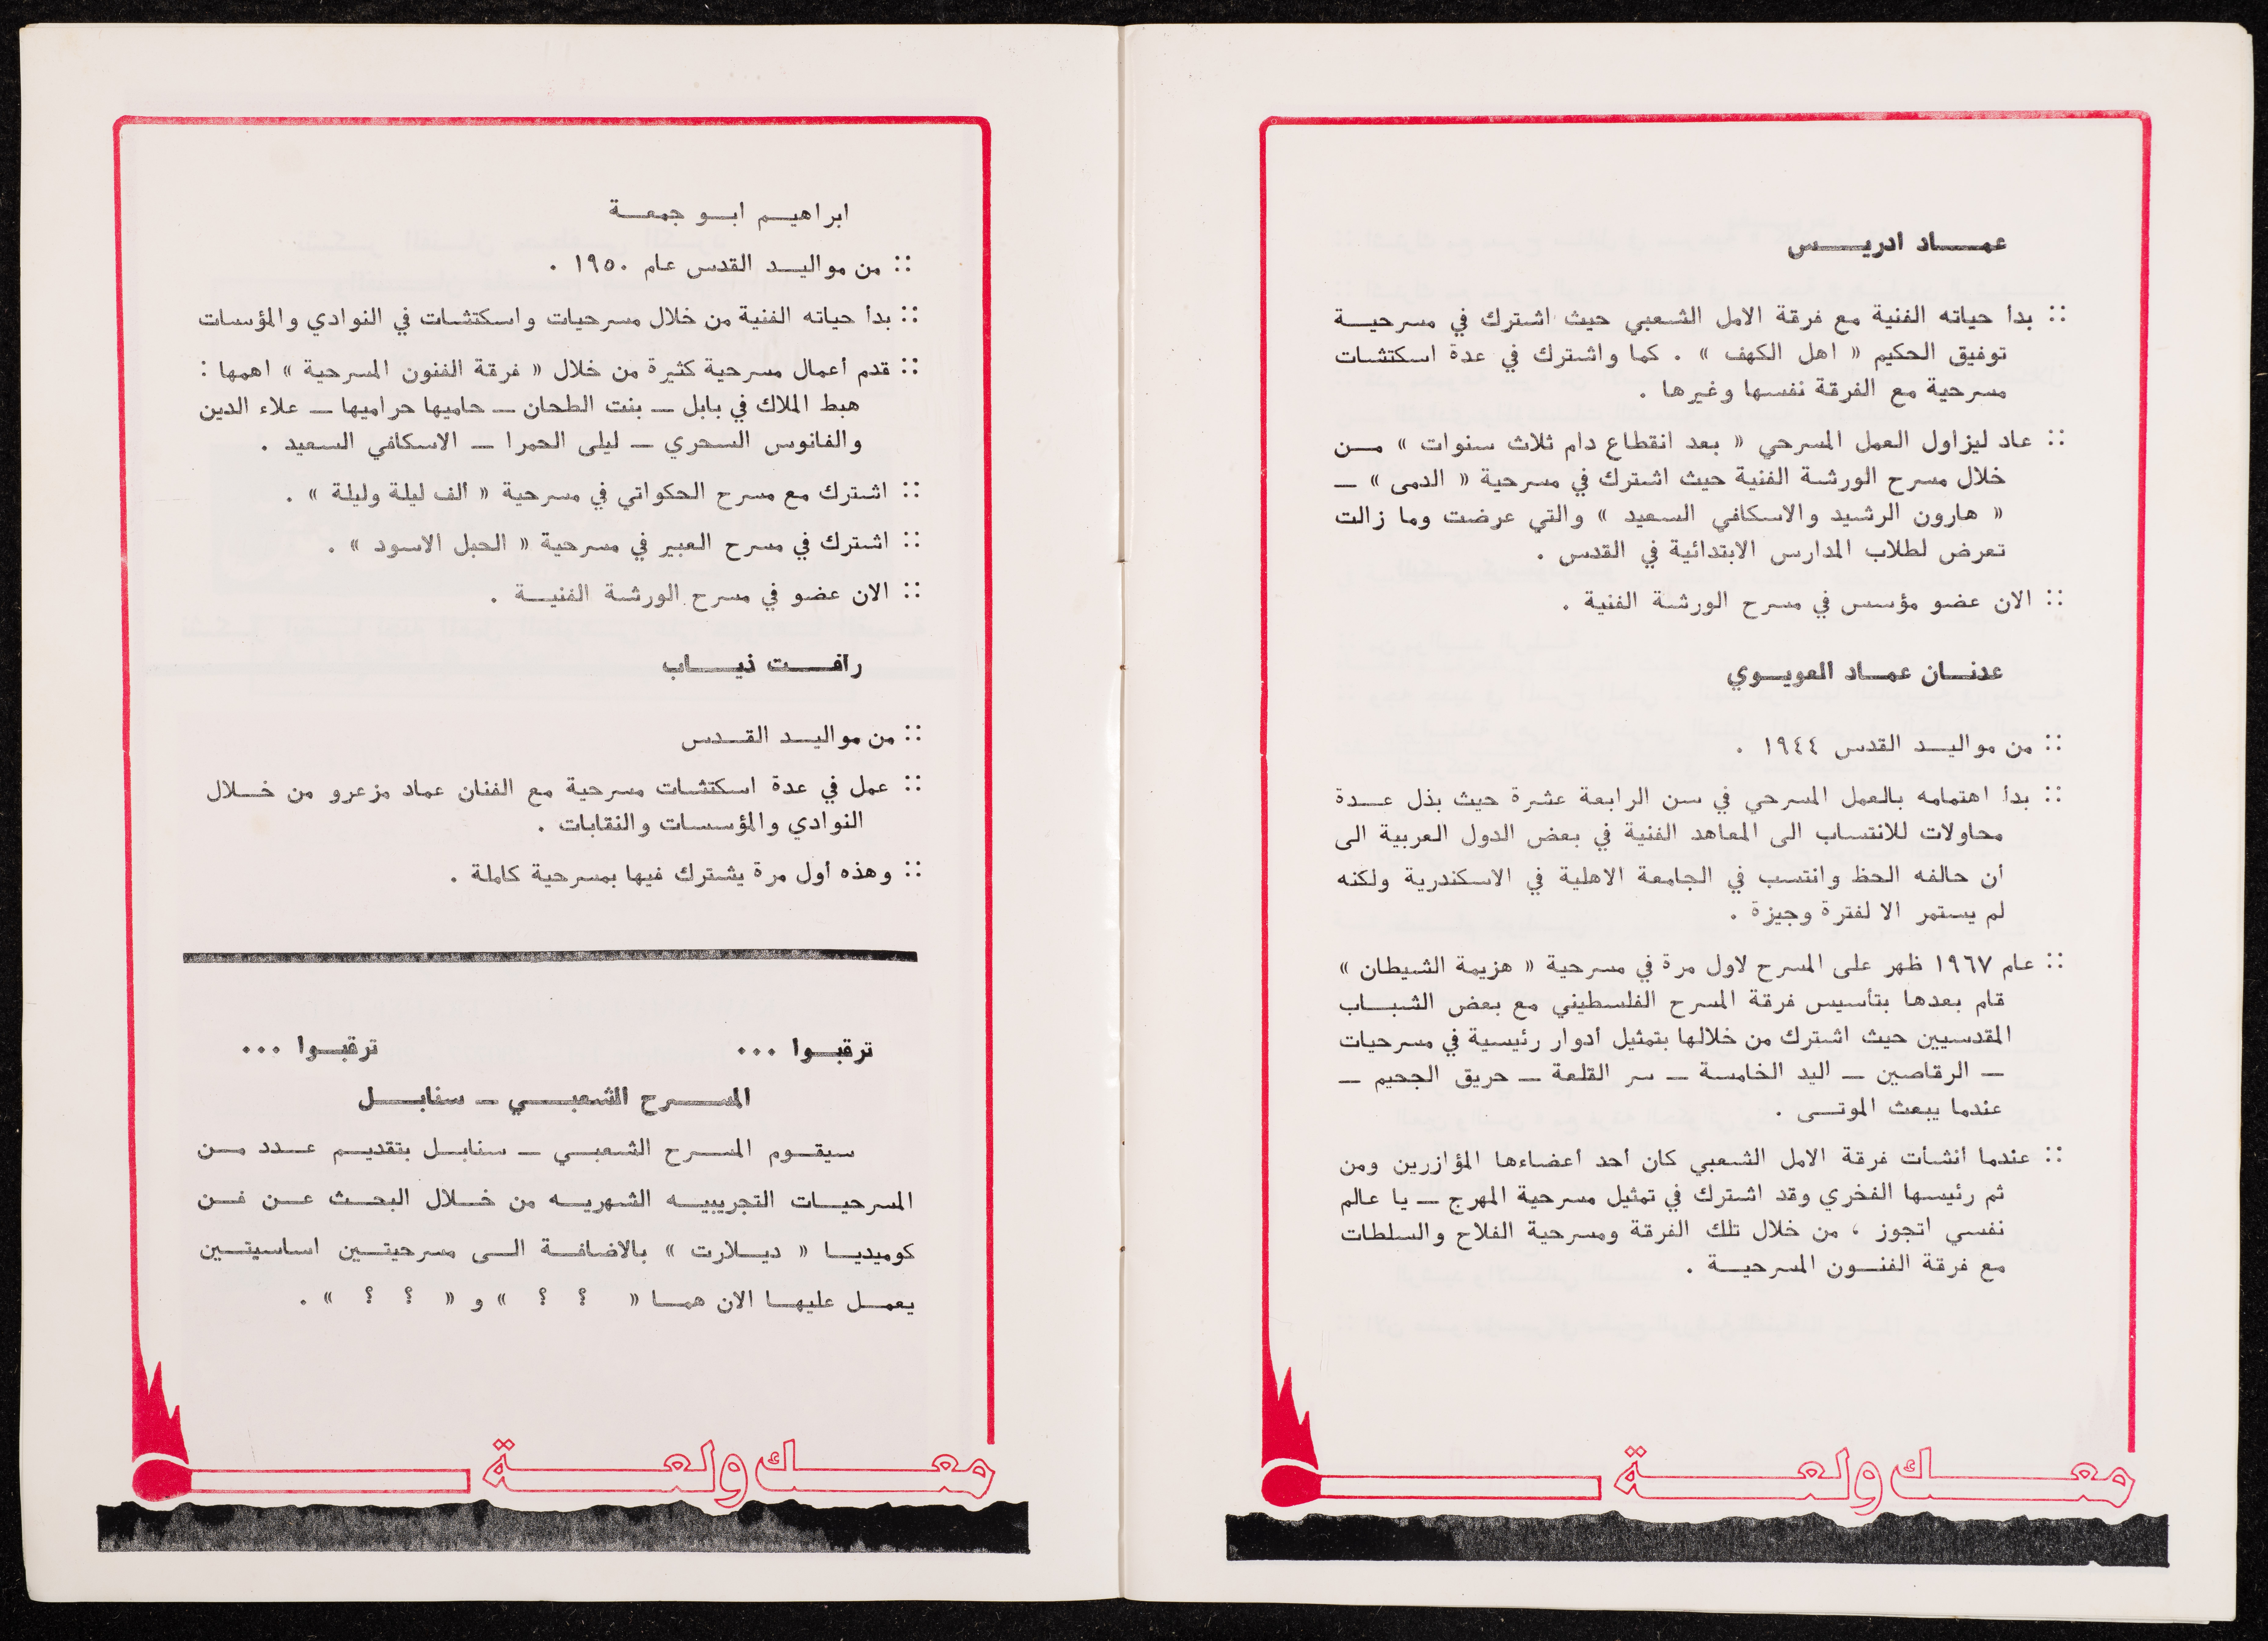 عماد ادريس
:: بدأ حياته الفنية مع فرقة الامل الشعبي حيث اشترك في مسرحية
توفيق الحكيم « اهل الكهف » . كما واشترك في عدة اسكتشات
مسرحية مع الفرقة نفسها وغيرها .
:: عاد ليزاول العمل المسرحي « بعد انقطاع دام ثلاث سنوات » من
خلال مسرح الورشة الفنية حيث اشترك في مسرحية « الدمى » —
« هارون الرشيد والاسكافي السعيد » والتي عرضت وما زالت
تعرض لطلاب المدارس الابتدائية في القدس .
:: الان عضو مؤسس في مسرح الورشة الفنية .
عدنان عماد العويوي
:: من مواليد القدس ١٩٤٤ .
:: بدأ اهتمامه بالعمل المسرحي في سن الرابعة عشرة حيث بذل عدة
محاولات للانتساب الى المعاهد الفنية في بعض الدول العربية الى
أن حالفه الحظ وانتسب في الجامعة الاهلية في الاسكندرية ولكنه
لم يستمر الا لفترة وجيزة .
:: عام ١٩٦٧ ظهر على المسرح لاول مرة في مسرحية « هزيمة الشيطان »
قام بعدها بتأسيس فرقة المسرح الفلسطيني مع بعض الشباب
المقدسيين حيث اشترك من خلالها بتمثيل أدوار رئيسية في مسرحيات
— الرقاصين — اليد الخامسة — سر القلعة — حريق الجحيم —
عندما يبعث الموتى .
:: عندما أنشأت فرقة الامل الشعبي كان أحد أعضاءها المؤازرين ومن
ثم رئيسها الفخري وقد اشترك في تمثيل مسرحية المهرج — يا عالم
نفسي اتجوز ، من خلال تلك الفرقة ومسرحية الفلاح والسلطات
مع فرقة الفنون المسرحية .
معك ولعة
ابراهيم ابو جمعة
:: من مواليد القدس عام ١٩٥٠ .
:: بدأ حياته الفنية من خلال مسرحيات واسكتشات في النوادي والمؤسسات
:: قدم أعمال مسرحية كثيرة من خلال « فرقة الفنون المسرحية » اهمها :
هبط الملاك في بابل — بنت الطحان — حاميها حراميها — علاء الدين
والفانوس السحري — ليلى الحمرا — الاسكافي السعيد .
:: اشترك مع مسرح الحكواتي في مسرحية « ألف ليلة وليلة » .
:: اشترك في مسرح العبير في مسرحية « الحبل الاسود » .
:: الان عضو في مسرح الورشة الفنية .
رافت ذياب
:: من مواليد القدس
:: عمل في عدة اسكتشات مسرحية مع الفنان عماد مزعرو من خلال
النوادي والمؤسسات والنقابات .
:: وهذه أول مرة يشترك فيها بمسرحية كاملة .
ترقبوا ... ترقبوا ...
المسرح الشعبي — سنابل
سيقوم المسرح الشعبي — سنابل بتقديم عدد من
المسرحيات التجريبيه الشهريه من خلال البحث عن فن
كوميديا « ديلارت » بالاضافة الى مسرحيتين اساسيتين
يعمل عليها الان هما « ؟ ؟ » و « ؟ ؟ » .
معك ولعة